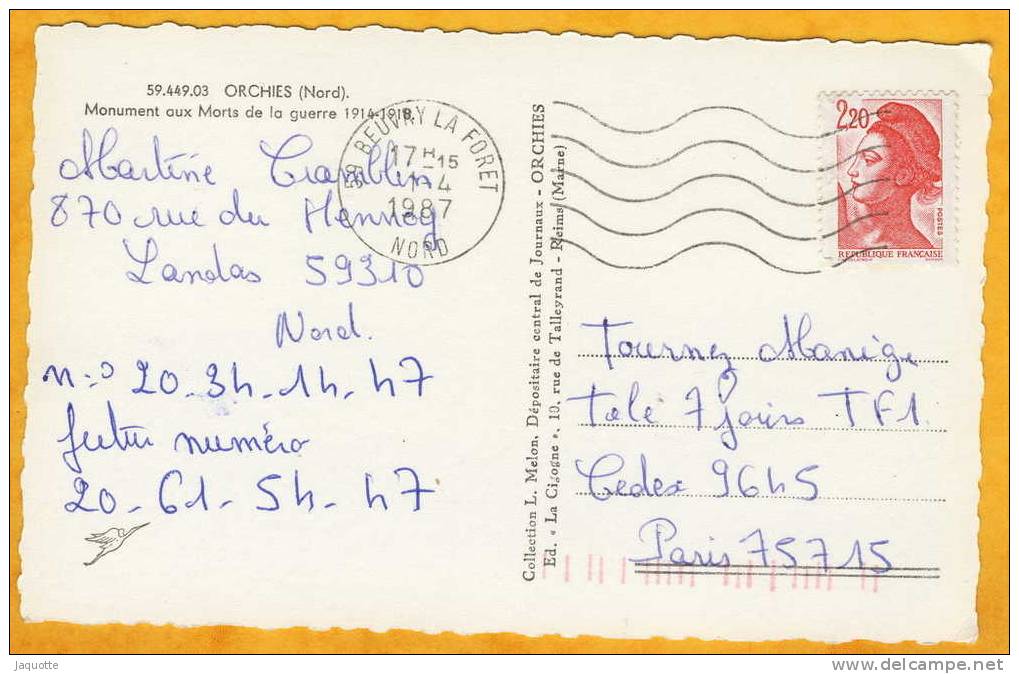 59.449.03 ORCHIES (Nord).
Monument aux Morts de la guerre 1914-1918.
Martine Tramblin
870 rue du Hennoy
Landas 59310
Nord.
n:o 20.34.14.47
futur numéro
20-61-54-47
59 BEUVRY LA FORET
17H15
1-4
1987
NORD
Collection L. Melon, Dépositaire central de Journaux - ORCHIES
Ed. « La Cigogne », 10, rue de Talleyrand - Reims (Marne)
2,20
POSTES
REPUBLIQUE FRANÇAISE
Tournez Manège
Télé 7 jours TF1.
Cedex 9645
Paris 75715
Jaquotte
www.delcampe.net